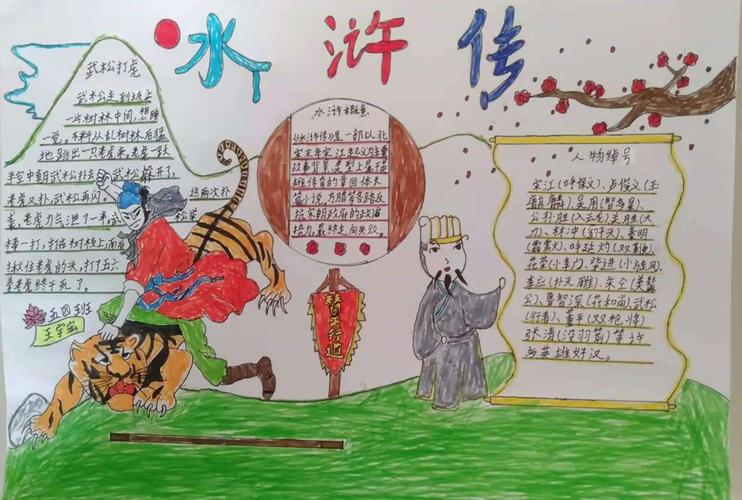 水浒传
武松打虎
武松走到坡上
一片树林中间,想睡
一觉。不料从乱树林后猛
地跳出一只老虎来。老虎一跃
半空中朝武松扑去,武松躲开了,
老虎又扑,武松再闪。连两次扑
老虎力气泄了一半。武松举
棒一打,打在树枝上面后
揪住老虎的头,打了五六
拳老虎终于死了。
五四班
王宇
水浒概意
《水浒传》是一部以北
宋末年宋江起义为主要
故事背景、类型上属于英
雄传奇的章回体长
篇小说。带各路反
抗宋朝政府的政治
势力,最终走向失败。
替天行道
人物绰号
宋江(呼保义)、卢俊义(玉
麒麟)、吴用(智多星)、
公孙胜(入云龙)关胜(大
刀)、林冲(豹子头)、秦明
(霹雳火)、呼延灼(双鞭)、
花荣(小李广)、柴进(小旋风)
李应(扑天雕)、朱仝(美髯
公)、鲁智深(花和尚)、武松
(行者)、董平(双枪将)
张清(没羽箭)等许
多英雄好汉。